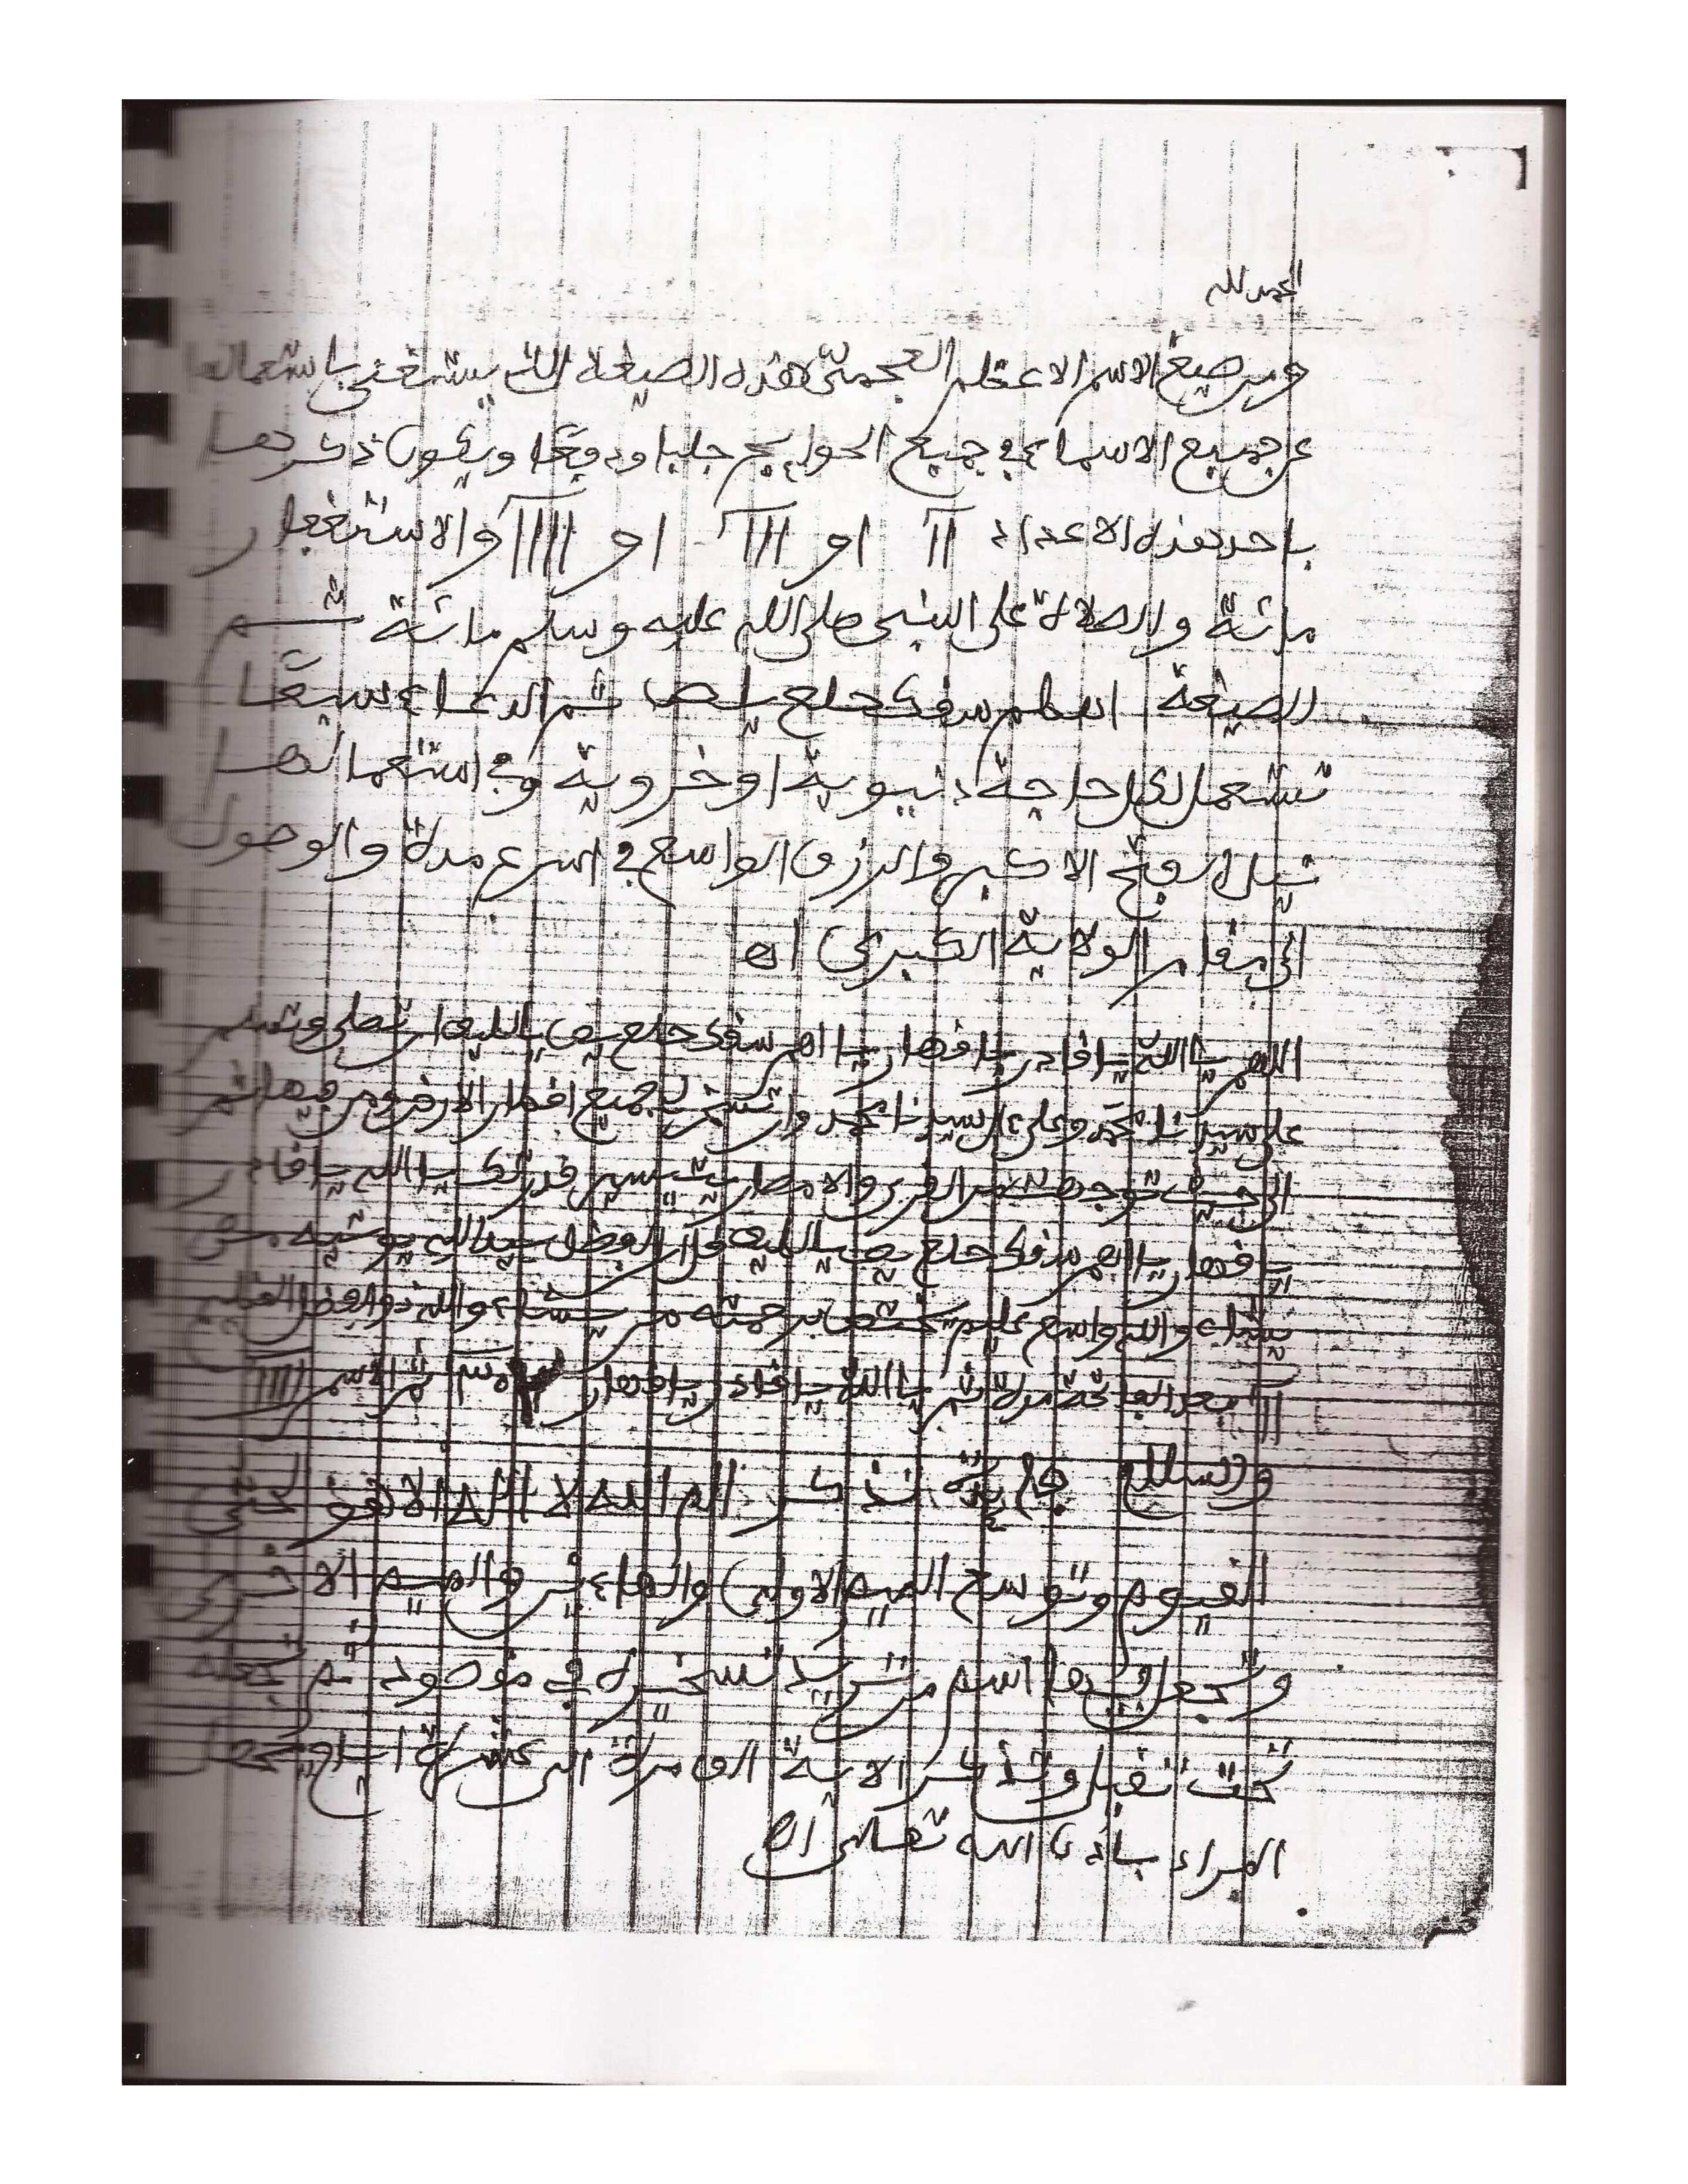 الحمد لله
ومن صيغ الاسم الاعظم العجمى هذه الصيغة التى يستغنى باستعمالها
عن جميع الاسماء فى جميع الحوايج جلبا ودفعا ويكون ذكرها
باحد هذه الاعداد ااا او اااا او ااااا والاستغفار
مائة والصلاة على النبى صلى الله عليه وسلم مائة ثم
الصيغة سقك حلع يص ثم الدعاء
تستعمل لكل حاجة دنيوية او خروية وفى استعمالها
نيل الفتح الاكبر والرزق الواسع فى اسرع مدة والوصول
الى مقام الولاية الكبرى اه
اللهم يا الله يا قادر يا قهار يا اهم سقك حلع يص ان تصلى وتسلم
على سيدنا محمد وعلى ءال سيدنا محمد وان تسخر لى جميع اقطار الارض ومن فيها
الى حيث توجهت من القرى والامصار بتيسير قدرتك يا الله يا قادر
يا قهار يا اهم سقك حلع يص قل ان الفضل بيد الله يوتيه من
يشاء والله واسع عليم يختص برحمته من يشاء والله ذو الفضل العظيم
بعد الفاتحة مرة ثم يا الله يا قادر يا قهار ثم الاسم
تذكر الم الله لا اله الا هو الحى
القيوم وتوسع الميم الاولى والهاءين والميم الاخرى
وتجعل فيها اسم من تريد تسخيره فى مقصودك ثم تجعله
تحت وتذكر الاية الف مرة
المراد باذن الله تعالى اه